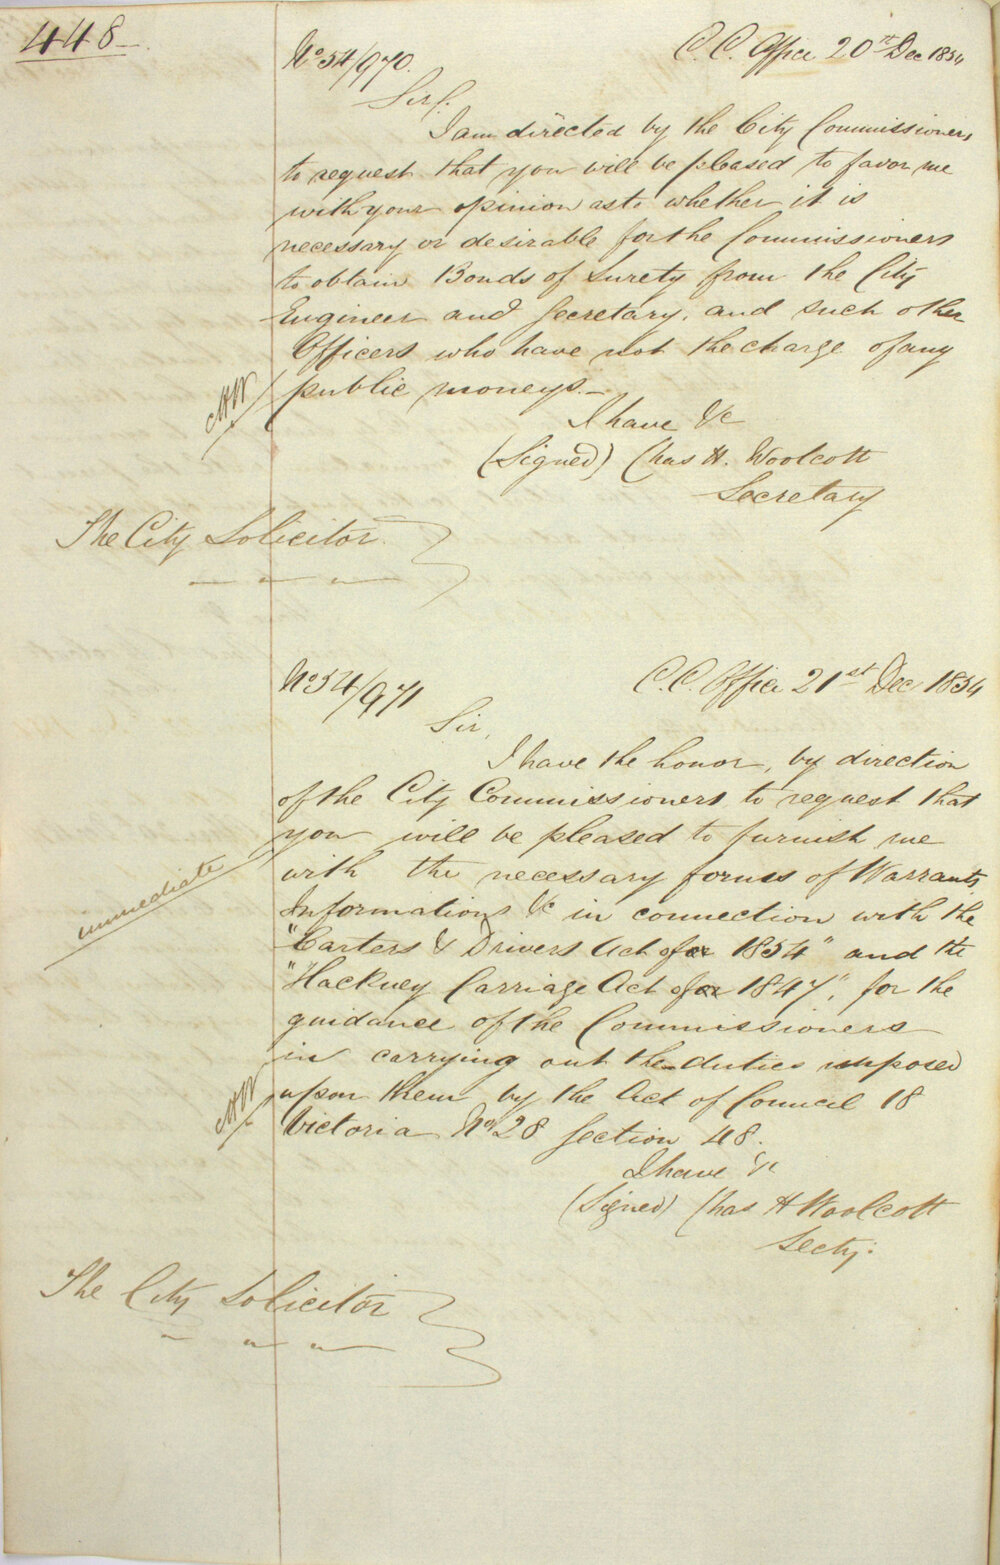 448
No 54/970.
C.C. Office 20th Dec 1854
Sir,
I am directed by the City Commissioners
to request that you will be pleased to favor me
with your opinion as to whether it is
necessary or desirable for the Commissioners
to obtain Bonds of Surety from the City
Engineer and Secretary, and such other
Officers who have not the charge of any
public moneys.—
I have &c
(Signed) Chas H. Woolcott
Secretary
The City Solicitor.
No 54/971
C.C. Office 21st Dec 1854
Sir,
I have the honor, by direction
of the City Commissioners to request that
you will be pleased to furnish me
immediate
with the necessary forms of Warrants
Informations &c in connection with the
"Carters & Drivers Act of 1854" and the
"Hackney Carriage Act of 1847", for the
guidance of the Commissioners
in carrying out the duties imposed
upon them by the Act of Council 18
Victoria No 28 Section 48.
I have &c
(Signed) Chas H Woolcott
Secty:
The City Solicitor